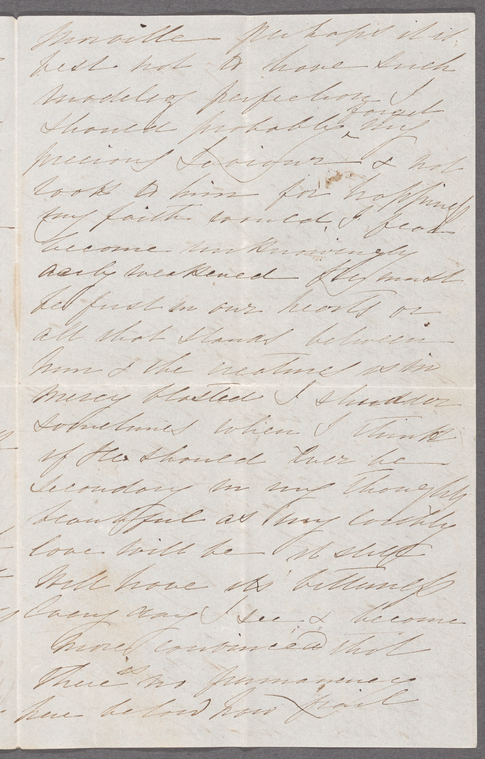 perhaps it is
best not to have such
modeling perfection I
should probably forget my
precious Saviour & not
look to him for happiness
my faith would, I fear
become unknowingly
weakened He must
be first in our hearts or
all that stands between
him & the creature is in
mercy blasted I shudder
sometimes when I think
if He should ever be
secondary in my thoughts
beautiful as my earthly
love will be it still
will have its bitterness
Every day I see & become
more convinced that
there is no permanency
here below how frail